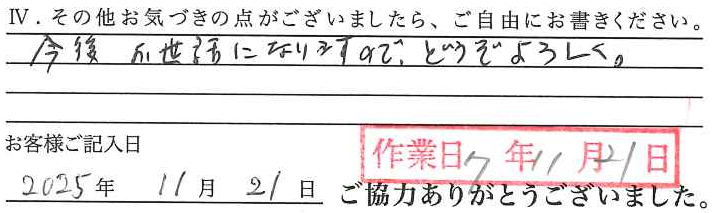 Ⅳ．その他お気づきの点がございましたら、ご自由にお書きください。
今後お世話になりますので、どうぞよろしく。
お客様ご記入日
作業日 7年11月21日
2025年 11月 21日
ご協力ありがとうございました。